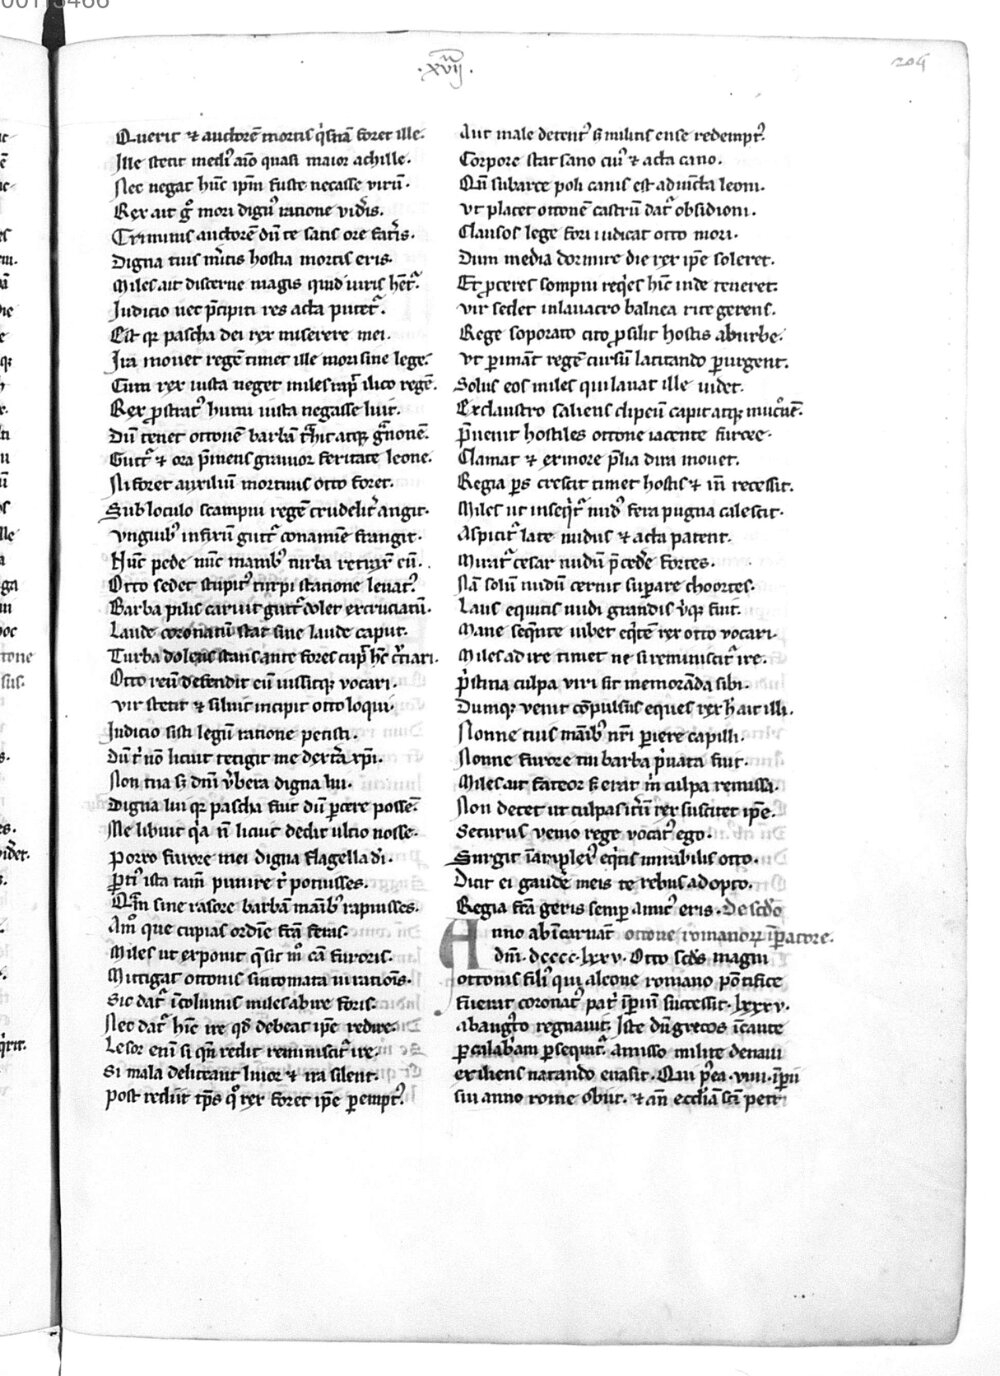 ·xviij·
204
Querit & auctorē mortis q̇ sūa foret ille.
Ille stetit medi⁹ aīo quasi maior achille.
Nec negat hūc ip̄m fuste necasse virū.
Rex ait gͦ mori dign⁹ ratione vid̓is.
Criminis auctorē dū te satis ore fat̓is.
Digna tuis m̓itis hostia mortis eris.
Miles ait discerne magis quid iuris hēt᷑.
Iudicio nec p̄cipiti res acta putet᷑.
Est qꝛ pascha dei rex miserere mei.
Ira mouet regē timet ille mori sine lege.
Cum rex iusta neget miles rap̄ ilico regē.
Rex ꝓstrat⁹ humi iusta negasse luit.
Dū tenet ottonē barbā t̓hit atqꝫ g̓nonē.
Gutt᷑ & ora p̄mens grauior feritate leone.
Ni foret auxiliū mortuus otto foret.
Sub loculo scampni regē crudelit̓ angit.
Vnguib⁹ infixū gutt᷑ conamīe frangit.
Hūc pede nūc manib⁹ turba retrax̄ eū.
Otto sedet stupit⁹ turpi statione leuat⁹.
Barba pilis caruit gutt᷑ dolet excruciatū.
Laude coronatum stat sine laude caput.
Turba dolens stans ante fores cup̄ hēc c̓ciari.
Otto reū defendit eū iussitqꝫ vocari.
Vir stetit & siluit incipit otto loqui.
Iudicio sisti legū ratione petisti.
Dū t̓ nō licuit tetigit me dext̓a xp̄i.
Non tua sꝫ dn̄i v̓bera digna lui.
Digna lui qꝛ pascha fuit dū ꝑcere possē.
Me libuit qͥa n̄ licuit dedit ultio nosse.
Porro furore mei digna flagella di.
Ꝑti⁹ ista tam̄ punire t̓ potuisses.
Qͣm sine rasore barbam manib⁹ rapuisses.
Amͦ que cupias ordīe fr̄a feras.
Miles ut exponit q̄ sit mͦ cā furoris.
Mittigat ottonis sintomata vi rationīs.
Sic dat᷑ īcolumis miles abire foris.
Nec dat᷑ hīc ire qd̓ debeat ip̄e redire.
Lesor enī si qn̄ redit reminiscit᷑ ire.
Si mala deliteant liuor & ira silent.
Post rediit tp̄s qͦ rex foret ip̄e ꝑempt⁹.
Aut male detent⁹ sꝫ militis ense redempt⁹.
Corpore stat sano ciu⁹ & acta cano.
Qn̄ sub arce poli canis est adiuncta leoni.
Vt placet ottonē castrū dat᷑ obsidioni.
Clausos lege fori iudicat otto mori.
Dum media dormire die rex ip̄e soleret.
Et ꝓceres sompni req̇es hīc inde teneret.
Vir sedet in lauacro balnea rite gerens.
Rege soporato cito ꝓsilit hostis ab urbe.
Vt ꝑimāt regē cursū latitando ꝑ urgent.
Solus eos miles qui lauat ille videt.
Ex claustro saliens clipeū capit atqꝫ mucͦnē.
P̄uenit hostiles ottone iacente furcee.
Clamat & ex more p̄lia dira mouet.
Regia ps̄ crescit timet hostis & in̄ recessit.
Miles ut inseq̇t᷑ nud⁹ fera pugna calescit.
Aspicit᷑ late nudus & acta patent.
Mirat᷑ cesar nudū p̄cedē fortes.
Nā solū nudū cernit suꝑare choortes.
Laus equitis nudi grandis v̓qꝫ fuit.
Mane seq̄nte iubet eq̇tē rex otto vocari.
Miles adire timet ne si reminiscit᷑ ire.
P̄stina culpa viri sit memorāda sibi.
Dumqꝫ venit cōpulsus eques rex h̓ ait illi.
Nonne tuis māib⁹ nr̄i ꝑiere capilli.
Nonne furore tui barba p̓uata fuit.
Miles ait fateor sꝫ erat m̓ culpa remissa.
Non decet ut culpas it̓ū rex suscitet ip̄e.
Securus venio rege vocāt⁹ ego.
Surgit īamplex⁹ eq̇tis mirabilis otto.
Dicit ei gaudē meis te rebus adopto.
Regia fr̄a geris semꝑ amic⁹ eris. De sc̄do
Anno ab īcarnat̄ ottone romanoꝝ īꝑatore.
dn̄i. dcccc. lxxv. Otto sc̄ds magni
ottonis fili⁹ qui alcone romano pōtifice
fuerat coronat⁹ pat̓ īꝑiū successit. lxxxv.
ab augͦto regnauit. Iste dū grecos īcante
ꝑ calabriam ꝑsequit᷑. amisso milite de naui
exiliens natando euasit. Qui p̄ea .viii. īꝑii
sui anno rome obiit. & an̄ eccliā sc̄i petri